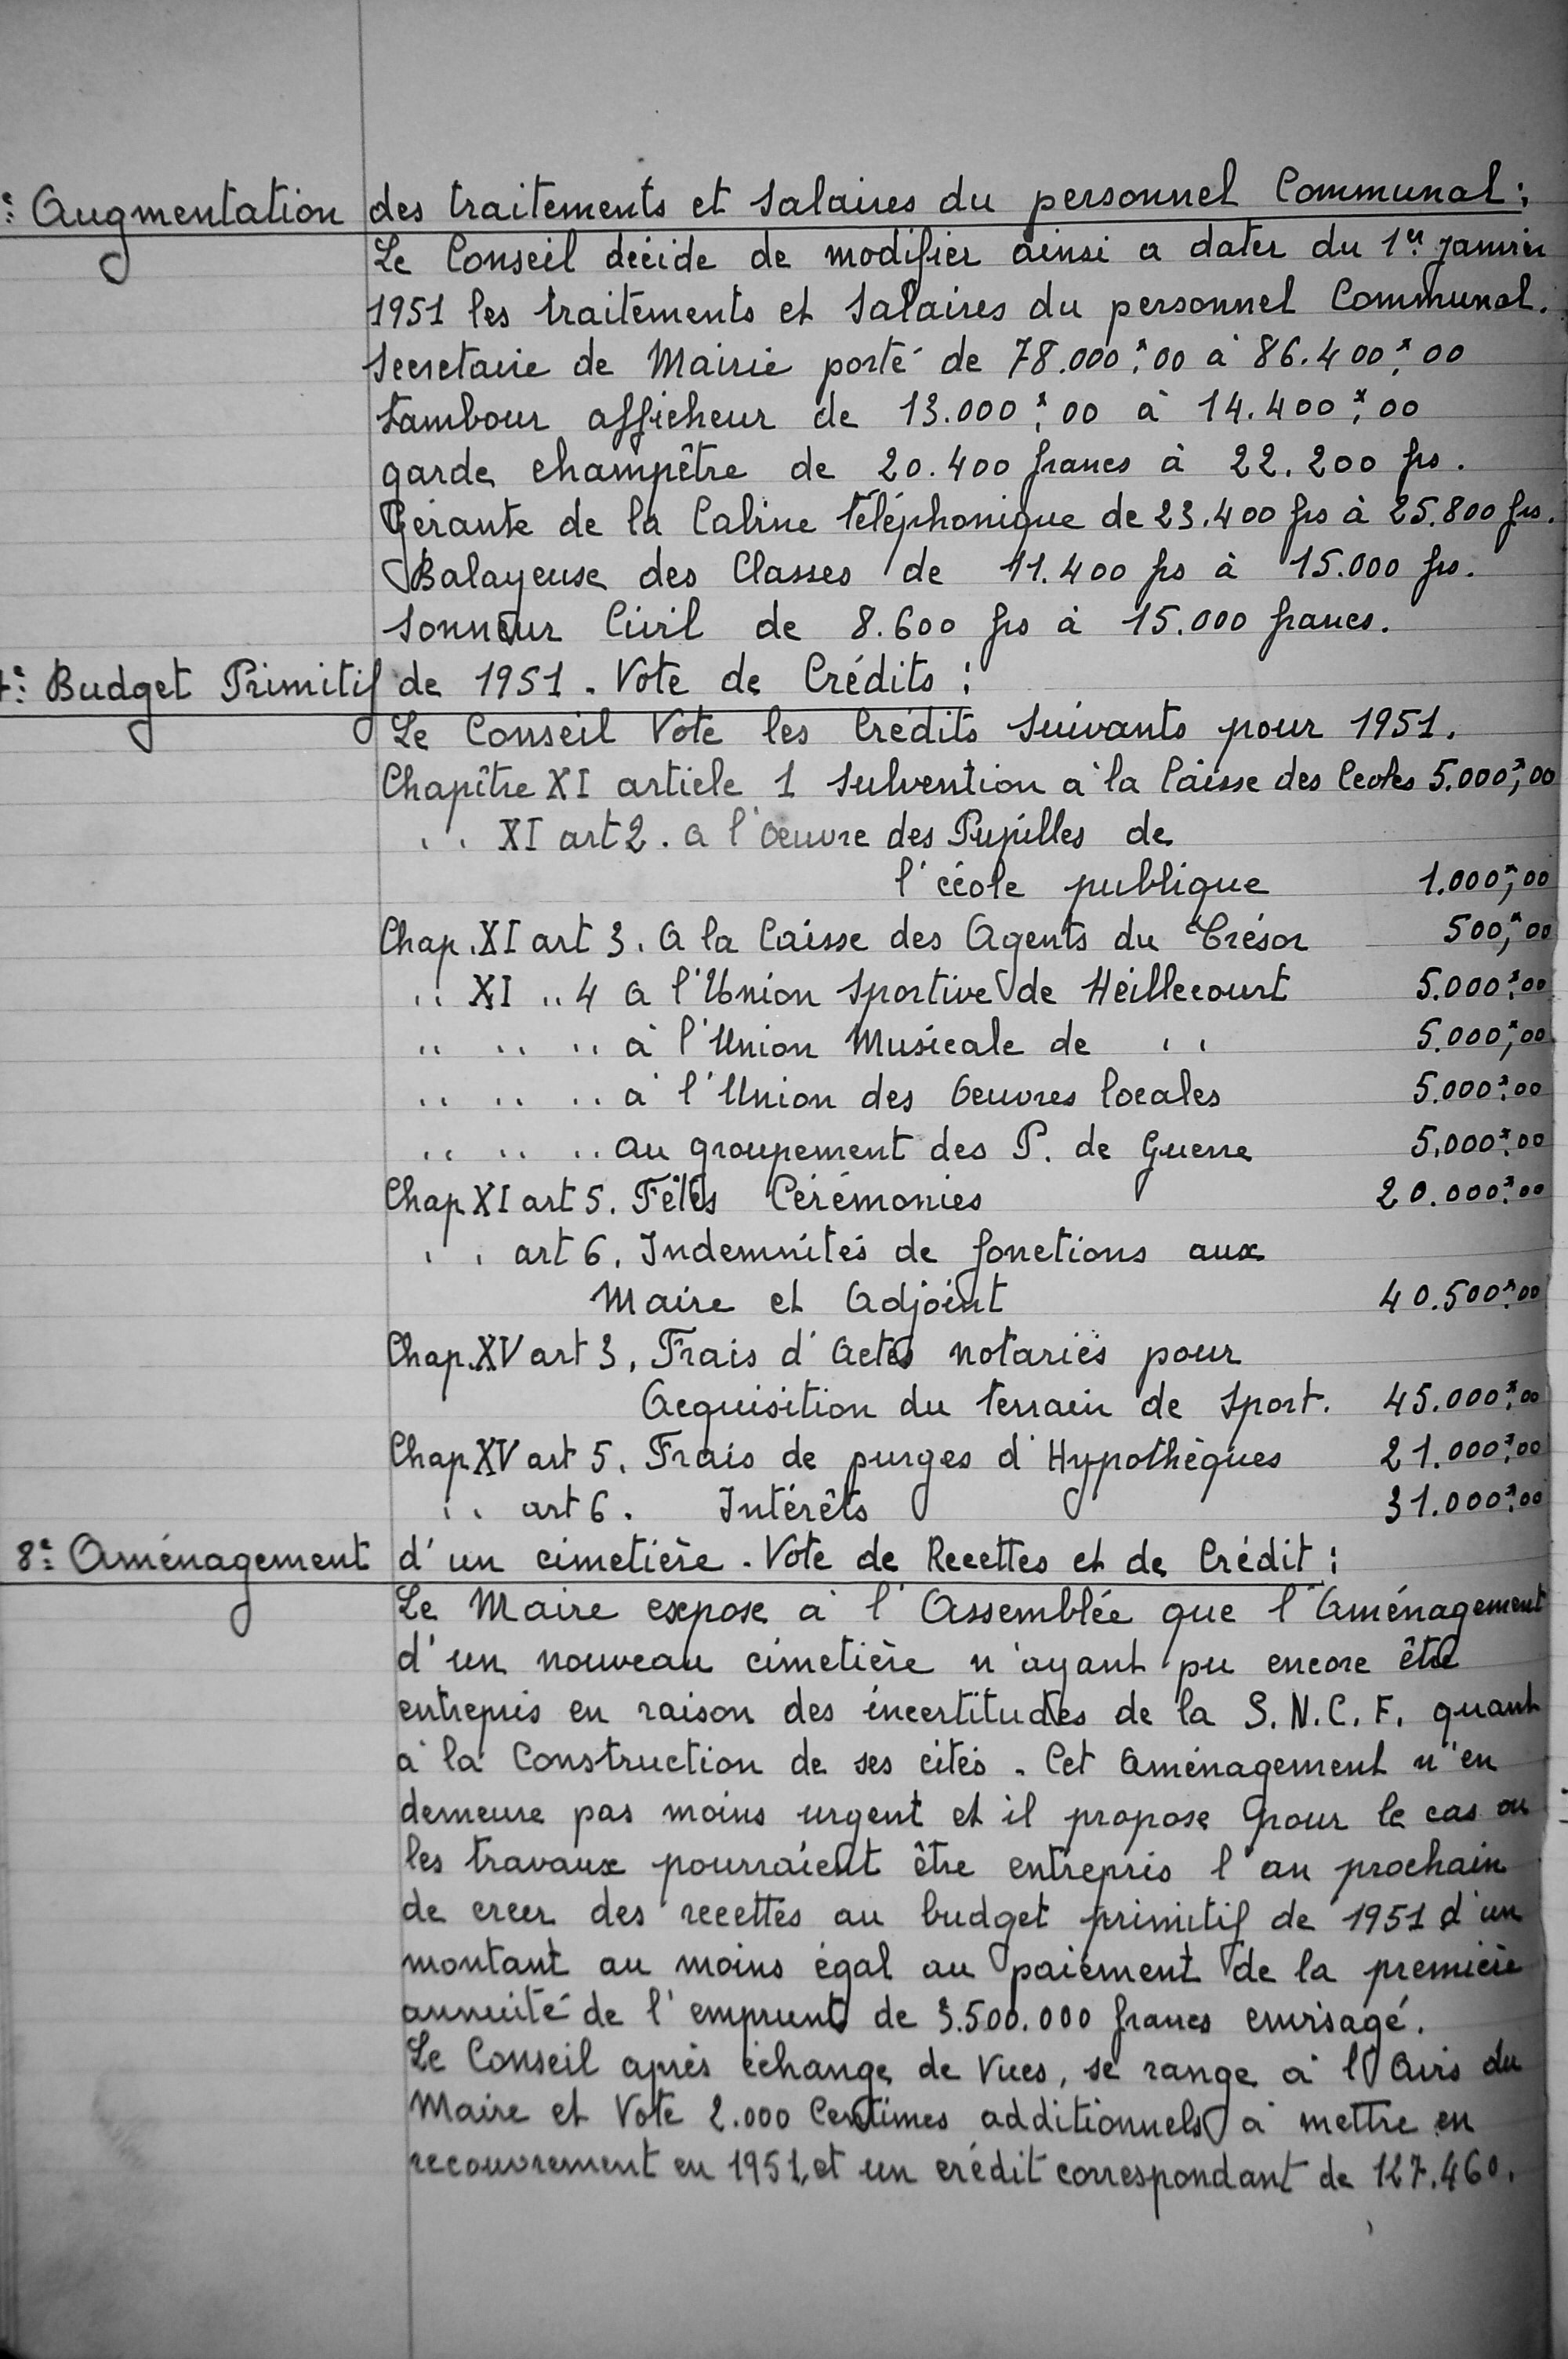 : Augmentation des traitements et salaires du personnel Communal :
Le Conseil décide de modifier ainsi a dater du 1er janvier
1951 les traitements et salaires du personnel Communal.
secretaire de Mairie porté de 78.000,00 à 86.400,00
tambour afficheur de 13.000,00 à 14.400,00
garde champêtre de 20.400 francs à 22.200 frs.
Gérante de la Cabine téléphonique de 23.400 frs à 25.800 frs.
Balayeuse des Classes de 11.400 frs à 15.000 frs.
sonneur Civil de 8.600 frs à 15.000 francs.
: Budget Primitif de 1951. Vote de Crédits :
Le Conseil Vote les Crédits suivants pour 1951.
Chapître XI article 1 subvention a la Caisse des Ecoles 5.000,00
" XI art 2. a l'oeuvre des Pupilles de
l'école publique 1.000,00
Chap. XI art 3. a la Caisse des Agents du Trésor 500,00
" XI " 4 a l'Union Sportive de Heillecourt 5.000,00
" " " à l'Union Musicale de " 5.000,00
" " " à l'Union des Oeuvres locales 5.000,00
" " " au groupement des P. de Guerre 5.000,00
Chap XI art 5. Fêtes Cérémonies 20.000,00
" art 6. Indemnités de fonctions aux
Maire et Adjoint 40.500,00
Chap. XV art 3. Frais d'actes notariés pour
Acquisition du terrain de sport. 45.000,00
Chap XV art 5. Frais de purges d'Hypothèques 21.000,00
" art 6. Intérêts 31.000,00
8e: Aménagement d'un cimetière. Vote de Recettes et de Crédit :
Le Maire expose à l'Assemblée que l'Aménagement
d'un nouveau cimetière n'ayant pu encore être
entrepris en raison des incertitudes de la S.N.C.F. quant
à la Construction de ses cités. Cet Aménagement n'en
demeure pas moins urgent et il propose pour le cas ou
les travaux pourraient être entrepris l'an prochain
de creer des recettes au budget primitif de 1951 d'un
montant au moins égal au paiement de la première
annuité de l'emprunt de 3.500.000 francs envisagé.
Le Conseil après échange de Vues, se range à l'Avis du
Maire et Vote 2.000 Centimes additionnels à mettre en
recouvrement en 1951, et un crédit correspondant de 127.460.